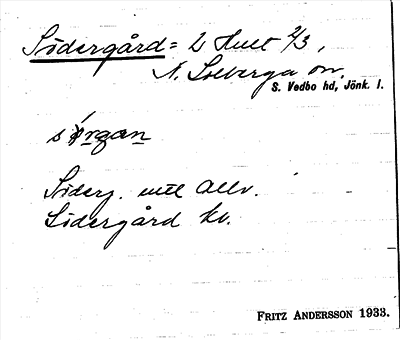 Södergård = 2 Hult 2/3,
N. Solberga sn.
S. Vedbo hd, Jönk. l.
sørgan
Söderg. utl allv.
Södergård kv.
FRITZ ANDERSSON 1933.